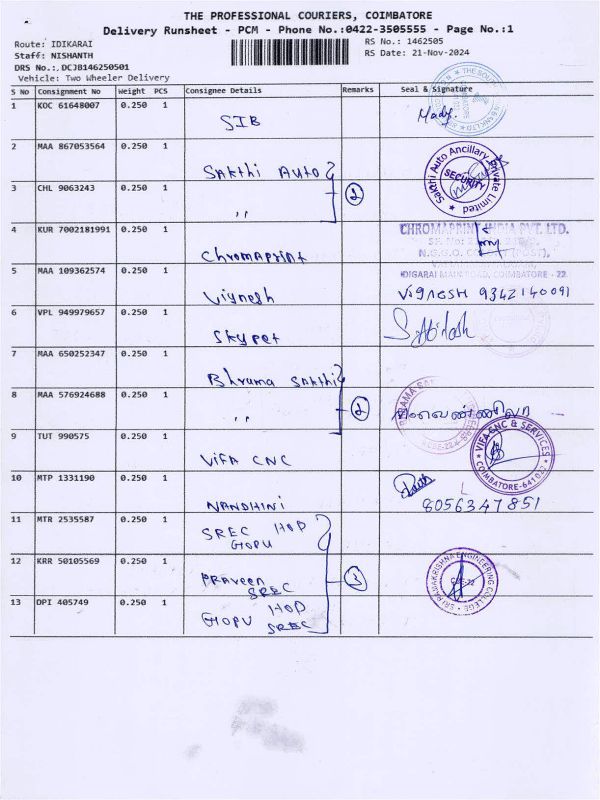 THE PROFESSIONAL COURIERS, COIMBATORE
Delivery Runsheet - PCM - Phone No.:0422-3505555 - Page No.:1
Route: IDIKARAI
RS No.: 1462505
Staff: NISHANTH
RS Date: 21-Nov-2024
DRS No.:.DCJB146250501
Vehicle: Two Wheeler Delivery
S No Consignment No Weight PCS Consignee Details Remarks Seal & Signature
1 KOC 61648007 0.250 1 SIB
2 MAA 867053564 0.250 1 Sakthi Auto
Sakthi Auto Ancillary Private Limited
SECURITY
3 CHL 9063243 0.250 1 ,, 2
4 KUR 7002181991 0.250 1 Chromaprint
CHROMAPRINT INDIA PVT. LTD.
IDIGARAI MAIN ROAD, COIMBATORE - 22
5 MAA 109362574 0.250 1 Vignesh VIGNESH 9342140091
6 VPL 949979657 0.250 1 Skypet
7 MAA 650252347 0.250 1 Bhrama Sakthi
8 MAA 576924688 0.250 1 ,, 2
9 TUT 990575 0.250 1 VIFA CNC
VIFA CNC & SERVICES
COIMBATORE-641022
10 MTP 1331190 0.250 1 NANDHINI 8056347851
11 MTR 2535587 0.250 1 SREC HOD
GOPU
12 KRR 50105569 0.250 1 Praveen
SREC 3
SRI RAMAKRISHNA ENGINEERING COLLEGE
CBE-22
13 DPI 405749 0.250 1 HOD
GOPU SREC